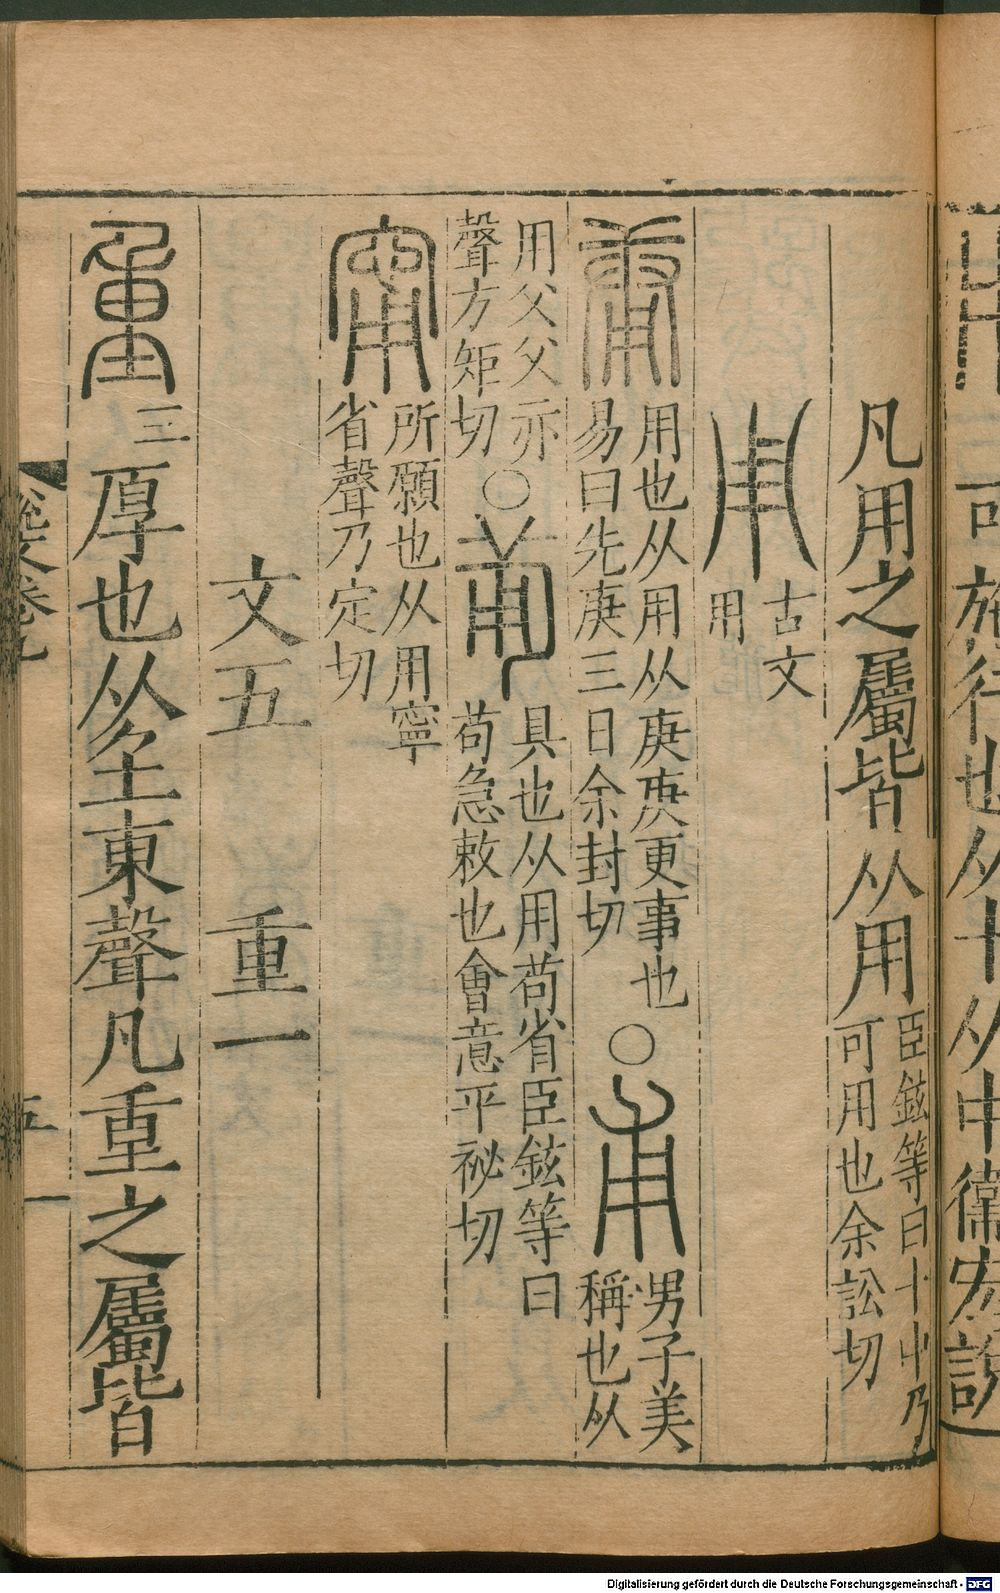 可施行也从卜从中衞宏說
凡用之屬皆从用臣鉉等曰卜中乃可用也余訟切
古文用
庸 用也从用从庚庚更事也易曰先庚三日余封切○甫 男子美稱也从
用父父亦聲方矩切○葡 具也从用苟省臣鉉等曰苟急敕也會意平祕切
甯 所願也从用寧省聲乃定切
文五 重一
重 三厚也从𡈼東聲凡重之屬皆
五
Digitalisierung gefördert durch die Deutsche Forschungsgemeinschaft - DFG